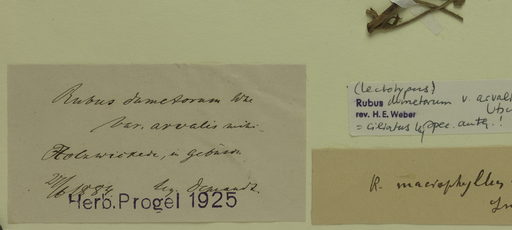 Rubus dumetorum Whe
var. arvalis mihi
Holzwickede, in Gebüsch
6.1884 leg. Demandt.
Herb. Progel 1925
(Lectotypus)
Rubus dumetorum v. arvalis
rev. H. E. Weber
= ciliatus
R. macrophyllus